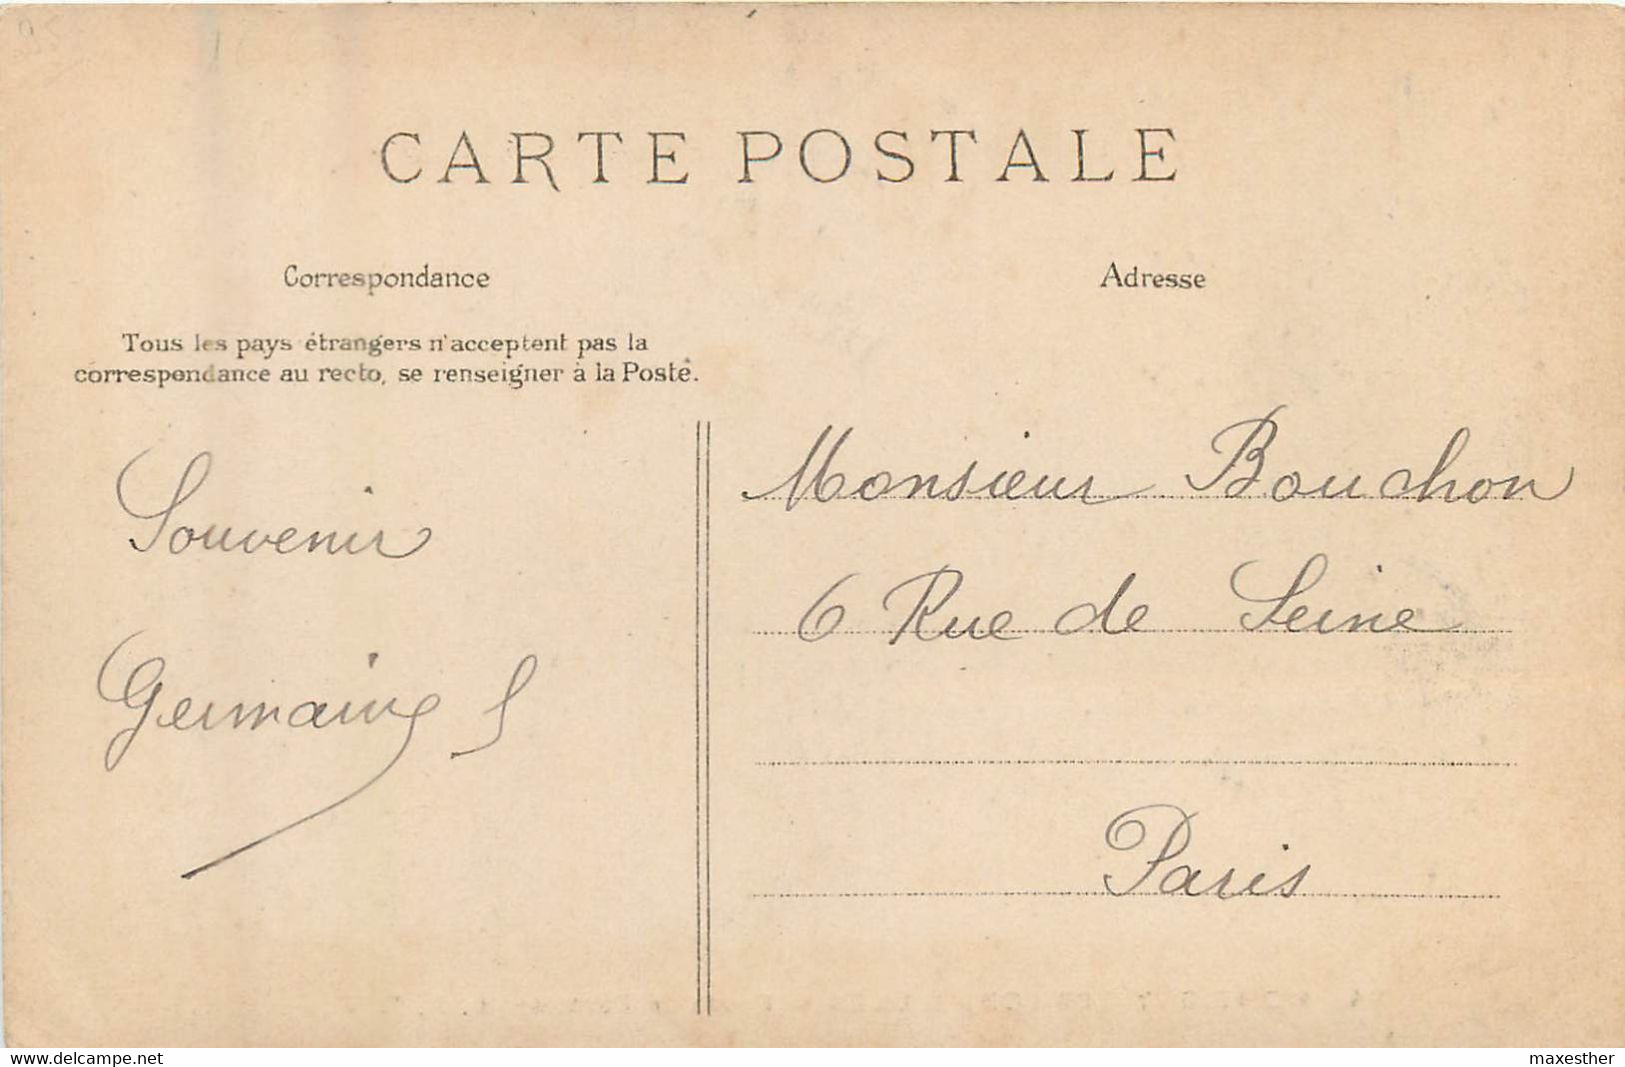 95
CARTE POSTALE
Correspondance
Tous les pays étrangers n'acceptent pas la
correspondance au recto, se renseigner à la Poste.
Souvenir
Germaine S
Adresse
Monsieur Bouchon
6 Rue de Seine
Paris
www.delcampe.net
maxesther